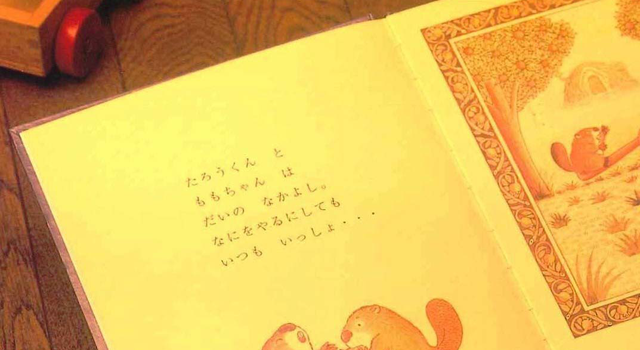 たろうくん と
ももちゃん は
だいの なかよし。
なにをやるにしても
いつも いっしょ・・・